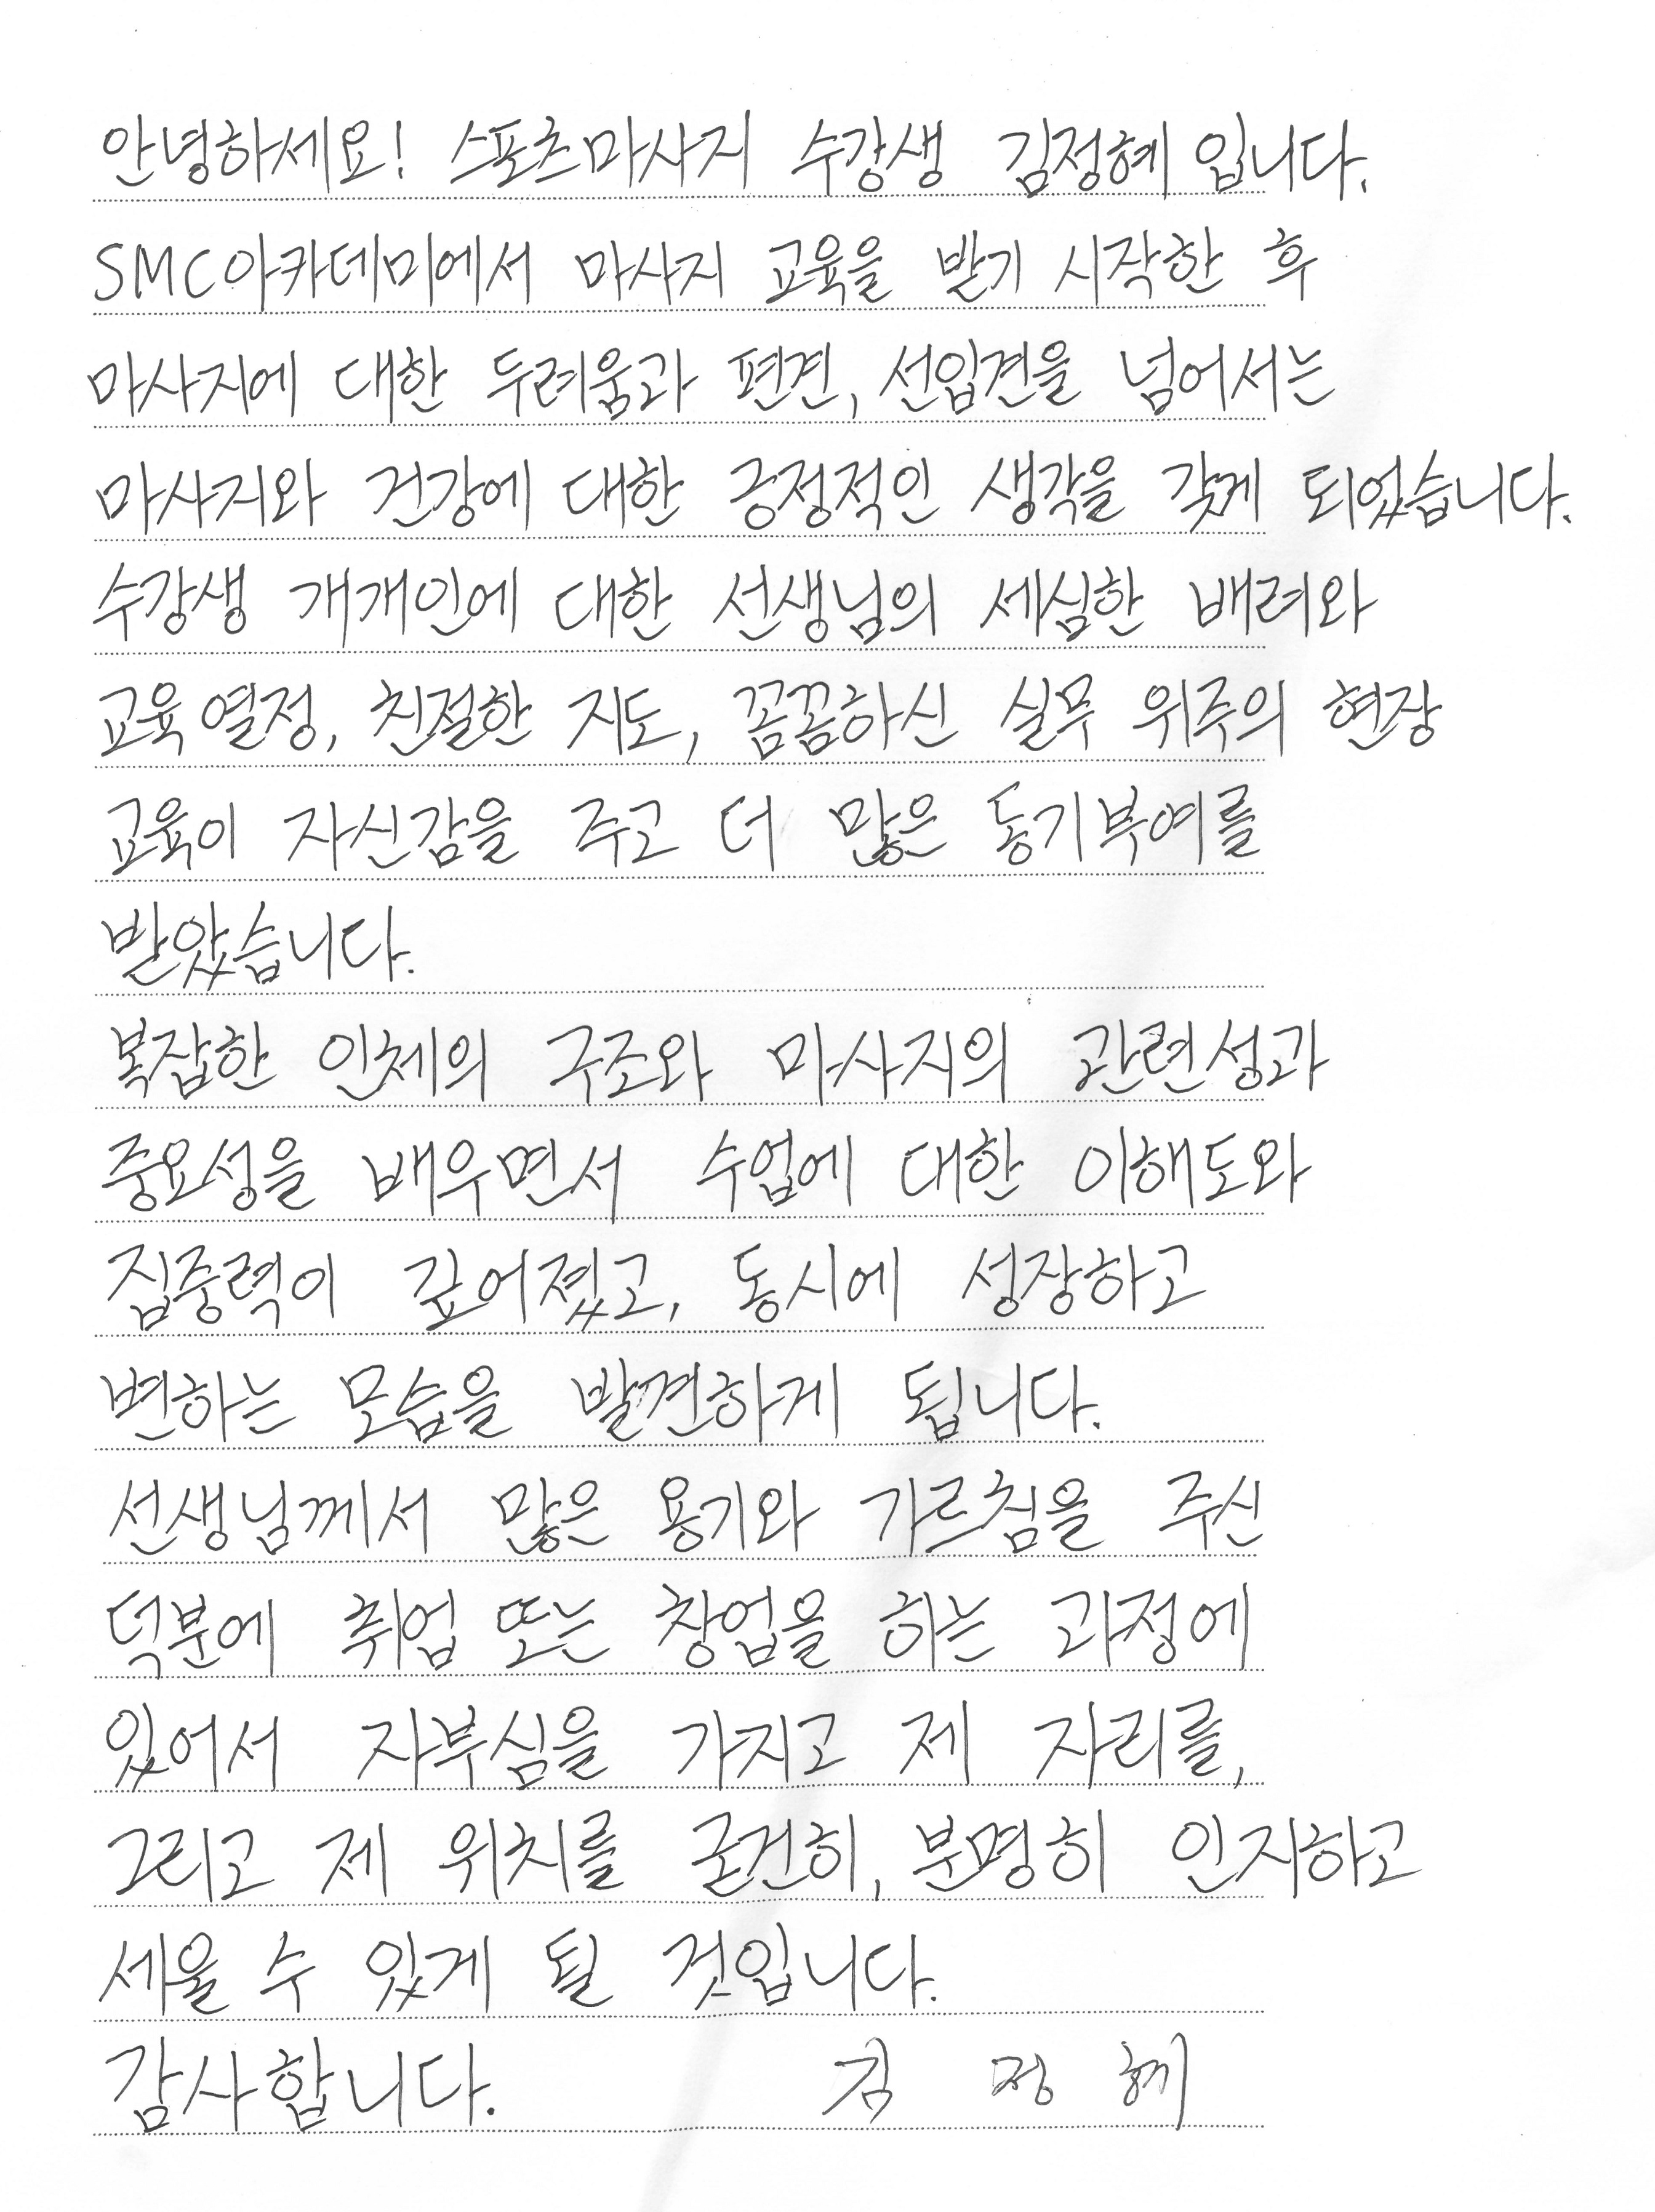 안녕하세요! 스포츠마사지 수강생 김정혜 입니다.
SMC아카데미에서 마사지 교육을 받기 시작한 후
마사지에 대한 두려움과 편견, 선입견을 넘어서는
마사지와 건강에 대한 긍정적인 생각을 갖게 되었습니다.
수강생 개개인에 대한 선생님의 세심한 배려와
교육 열정, 친절한 지도, 꼼꼼하신 실무 위주의 현장
교육이 자신감을 주고 더 많은 동기부여를
받았습니다.
복잡한 인체의 구조와 마사지의 관련성과
중요성을 배우면서 수업에 대한 이해도와
집중력이 깊어졌고, 동시에 성장하고
변하는 모습을 발견하게 됩니다.
선생님께서 많은 용기와 가르침을 주신
덕분에 취업 또는 창업을 하는 과정에
있어서 자부심을 가지고 제 자리를,
그리고 제 위치를 굳건히, 분명히 인지하고
세울 수 있게 될 것입니다.
감사합니다. 김 정 혜